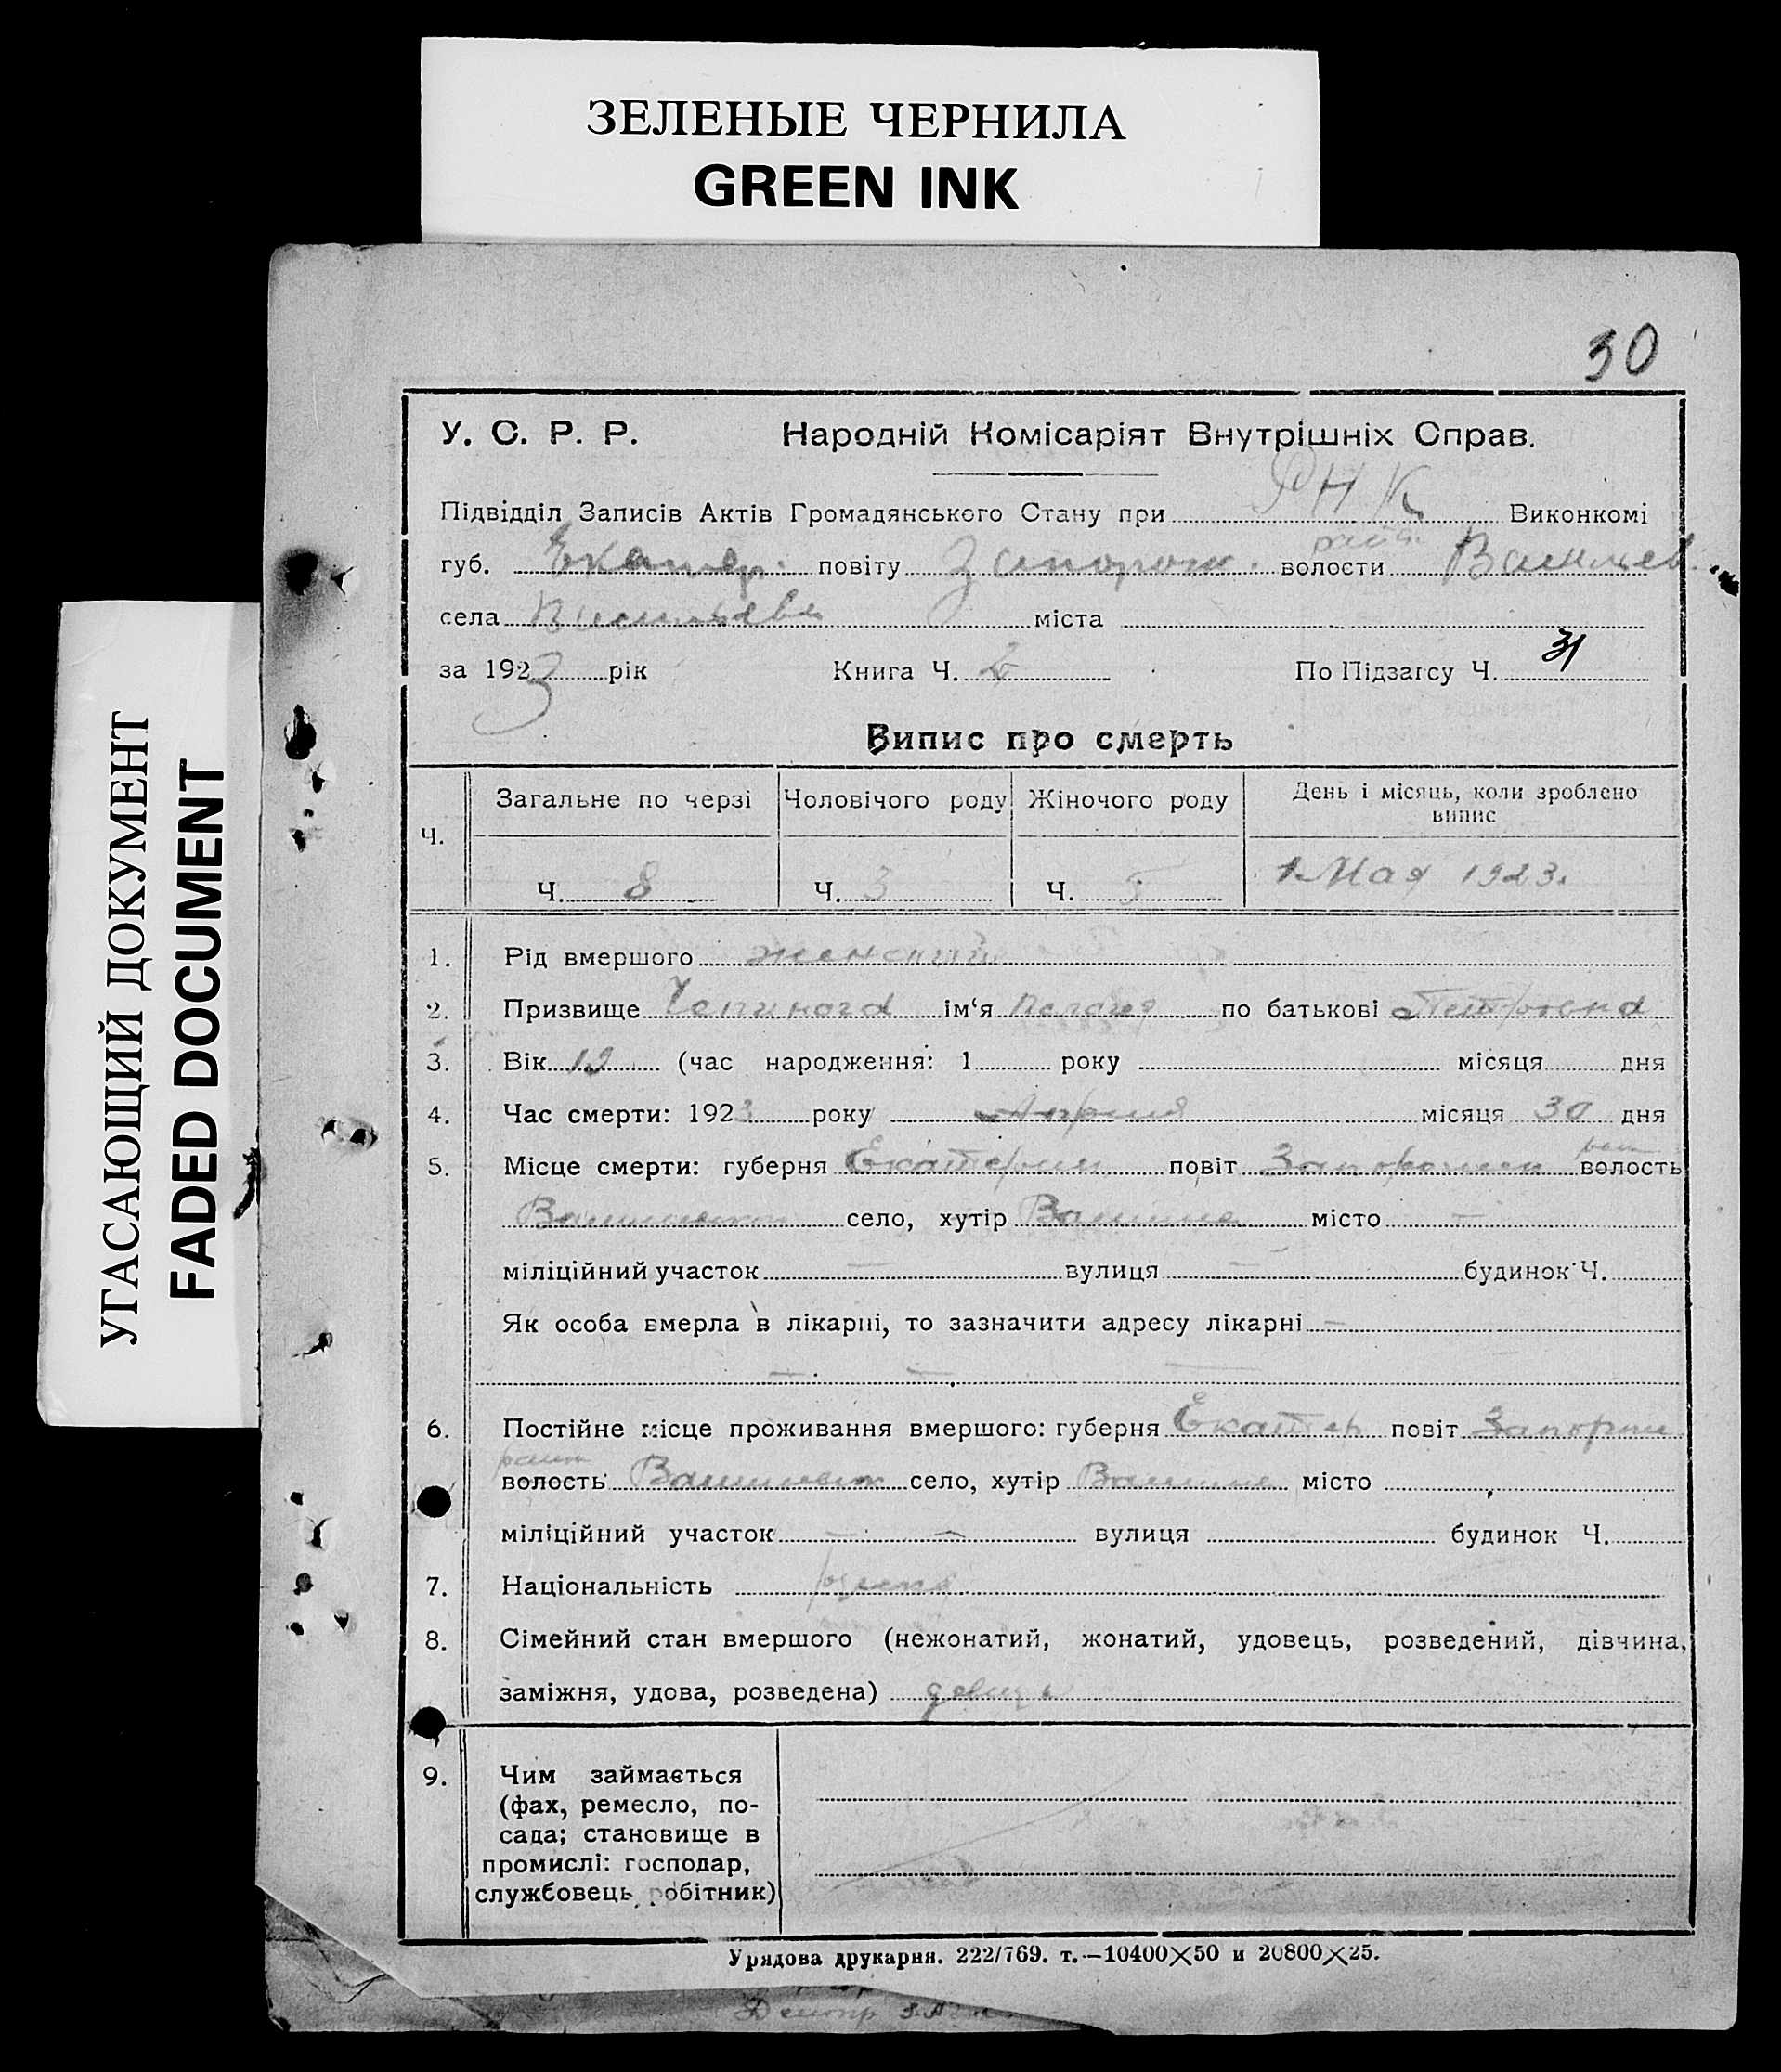 ЗЕЛЕНЫЕ ЧЕРНИЛА
GREEN INK
УГАСАЮЩИЙ ДОКУМЕНТ
FADED DOCUMENT
30
У. С. Р. Р. Народній Комісаріят Внутрішніх Справ.
Підвідділ Записів Актів Громадянського Стану при РНК Виконкомі
губ. Екатер. повіту Запорож. волости
села міста
за 1923 рік Книга Ч. По Підзагсу Ч. 31
Випис про смерть
Ч. Загальне по черзі Чоловічого роду Жіночого роду День і місяць, коли зроблено випис
Ч. 8 Ч. 3 Ч. 5 1 Мая 1923.
1. Рід вмершого женский
2. Призвище Чепинога ім‘я Пелагея по батькові Петровна
3. Вік 12 (час народження: 1 року місяця дня
4. Час смерти: 1923 року Апреля місяця 30 дня
5. Місце смерти: губерня Екатерин повіт волость
село, хутір місто —
міліційний участок — вулиця — будинок Ч.
Як особа вмерла в лікарні, то зазначити адресу лікарні —
— — —
6. Постійне місце проживання вмершого: губерня Екатер повіт
волость село, хутір місто
міліційний участок — — вулиця будинок Ч.
7. Національність
8. Сімейний стан вмершого (нежонатий, жонатий, удовець, розведений, дівчина,
заміжня, удова, розведена) девица
9. Чим займається
(фах, ремесло, по-
сада; становище в
промислі: господар,
службовець, робітник)
Урядова друкарня. 222/769. т.—10400×50 и 20800×25.